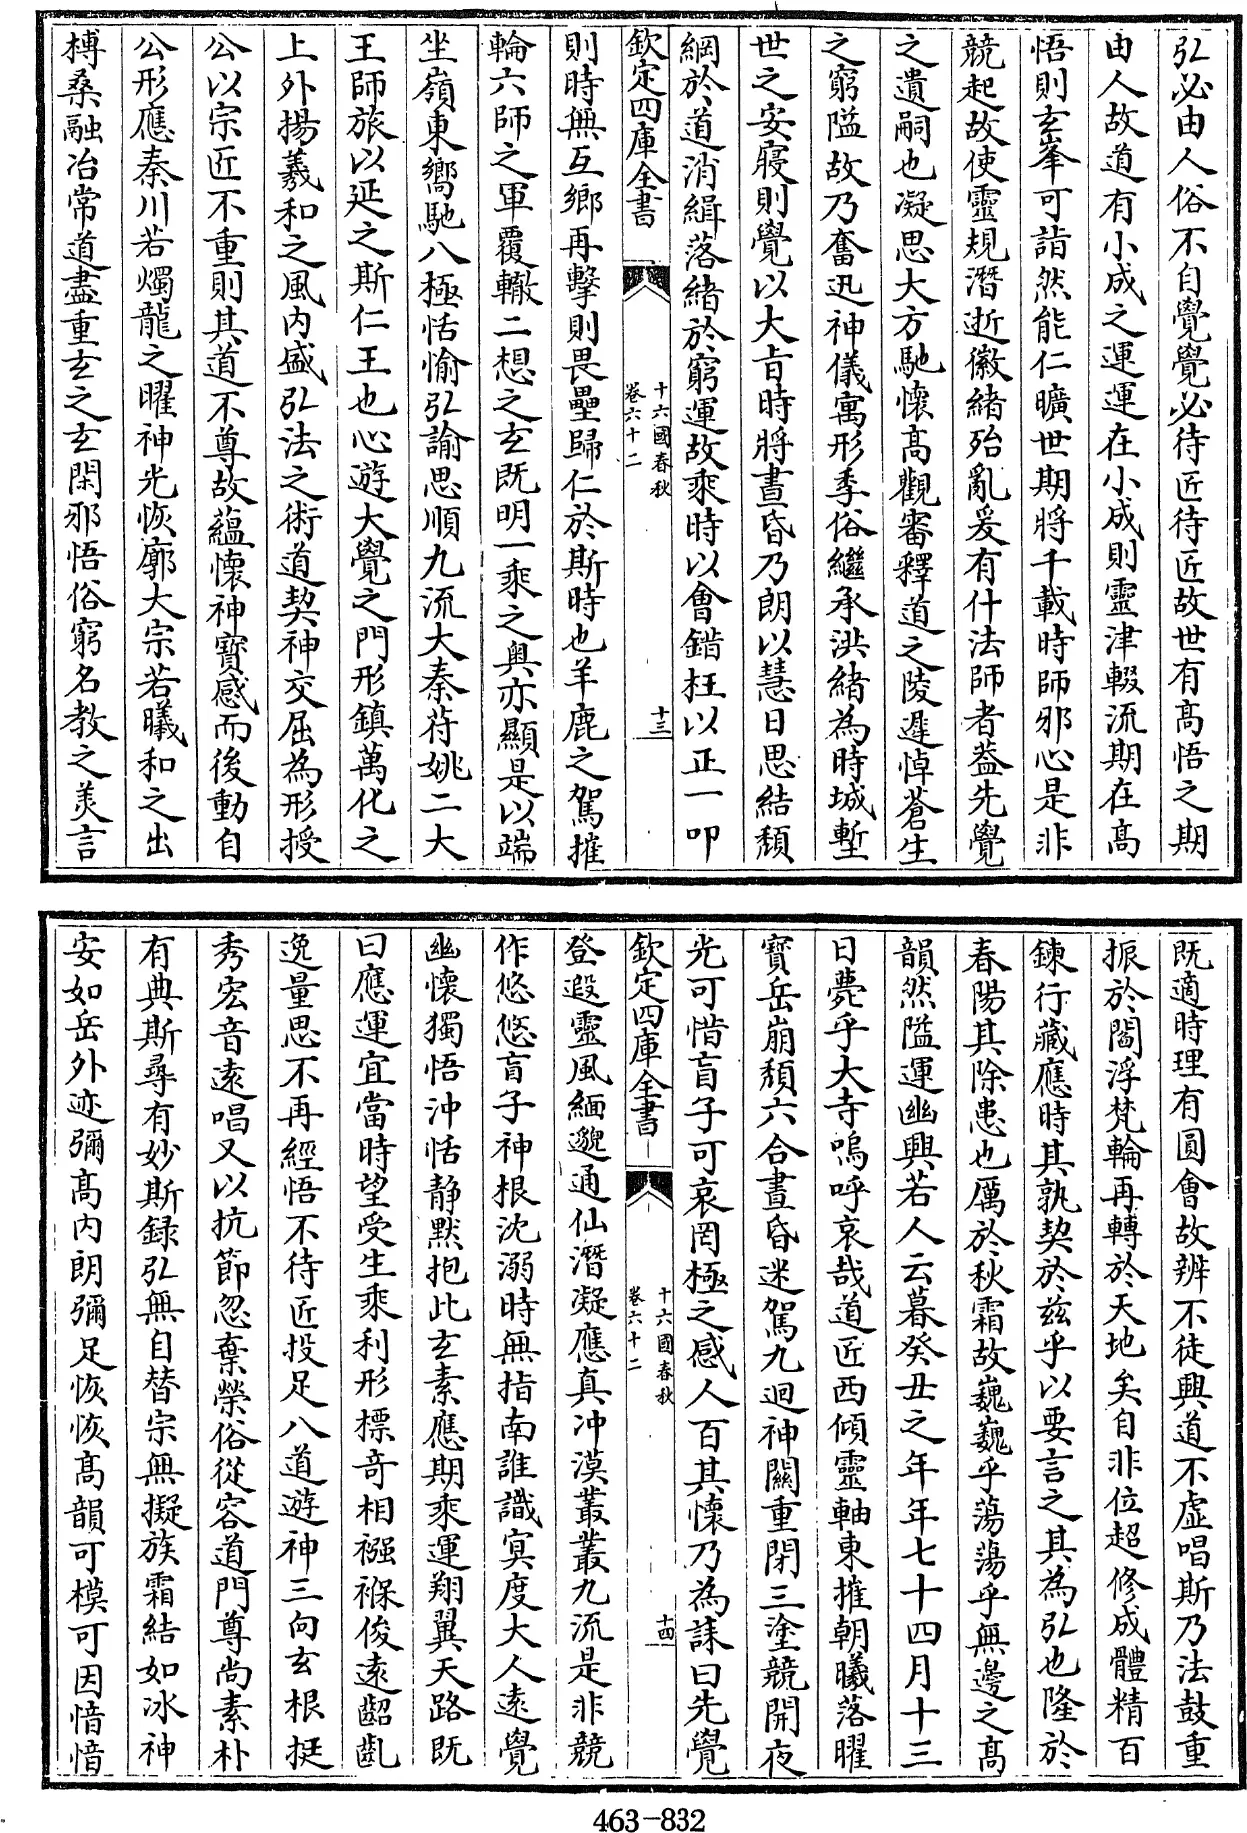 弘必由人俗不自覺覺必待匠待匠故世有髙悟之期
由人故道有小成之運運在小成則靈津輟流期在髙
悟則玄峯可詣然能仁曠世期將千載時師邪心是非
競起故使靈規潛逝徽緒殆亂爰有什法師者葢先覺
之遺嗣也凝思大方馳懷髙觀審釋道之陵遲悼蒼生
之窮隘故乃奮迅神儀寓形季俗繼承洪緒為時城塹
世之安寢則覺以大㫖時將晝昏乃朗以慧日思結頽
綱於道消緝落緒於窮運故乘時以會錯枉以正一叩
欽定四庫全書
十六國春秋
卷六十二
十三
則時無互鄉再擊則畏壘歸仁於斯時也羊鹿之駕摧
輪六師之軍覆轍二想之玄既明一乘之奥亦顯是以端
坐嶺東嚮馳八極恬愉弘諭思順九流大秦苻姚二大
王師旅以延之斯仁王也心遊大覺之門形鎮萬化之
上外揚羲和之風内盛弘法之術道契神交屈為形授
公以宗匠不重則其道不尊故藴懷神寳感而後動自
公形應秦川若燭龍之曜神光恢廓大宗若曦和之出
榑桑融冶常道盡重玄之玄閑邪悟俗窮名教之美言
既適時理有圓會故辨不徒興道不虚唱斯乃法鼓重
振於閻浮梵輪再轉於天地矣自非位超修成體精百
鍊行藏應時其孰契於兹乎以要言之其為弘也隆於
春陽其除患也厲於秋霜故巍巍乎蕩蕩乎無邊之髙
韻然隘運幽興若人云暮癸丑之年年七十四月十三
日薨乎大寺嗚呼哀哉道匠西傾靈軸東摧朝曦落曜
寶岳崩頽六合晝昏迷駕九迴神關重閉三塗競開夜
光可惜盲子可哀罔極之感人百其懷乃為誄曰先覺
欽定四庫全書
十六國春秋
卷六十二
十四
登遐靈風緬邈通仙潛凝應真冲漠叢叢九流是非競
作悠悠盲子神根沈溺時無指南誰識㝠度大人遠覺
幽懷獨悟沖恬静默抱此玄素應期乘運翔翼天路既
曰應運宜當時望受生乘利形標竒相襁褓俊遠齠齓
逸量思不再經悟不待匠投足八道遊神三向玄根挺
秀宏音遠唱又以抗節忽棄榮俗從容道門尊尚素朴
有典斯尋有妙斯録弘無自替宗無擬族霜結如冰神
安如岳外迹彌髙内朗彌足恢恢髙韻可模可因愔愔
463-832